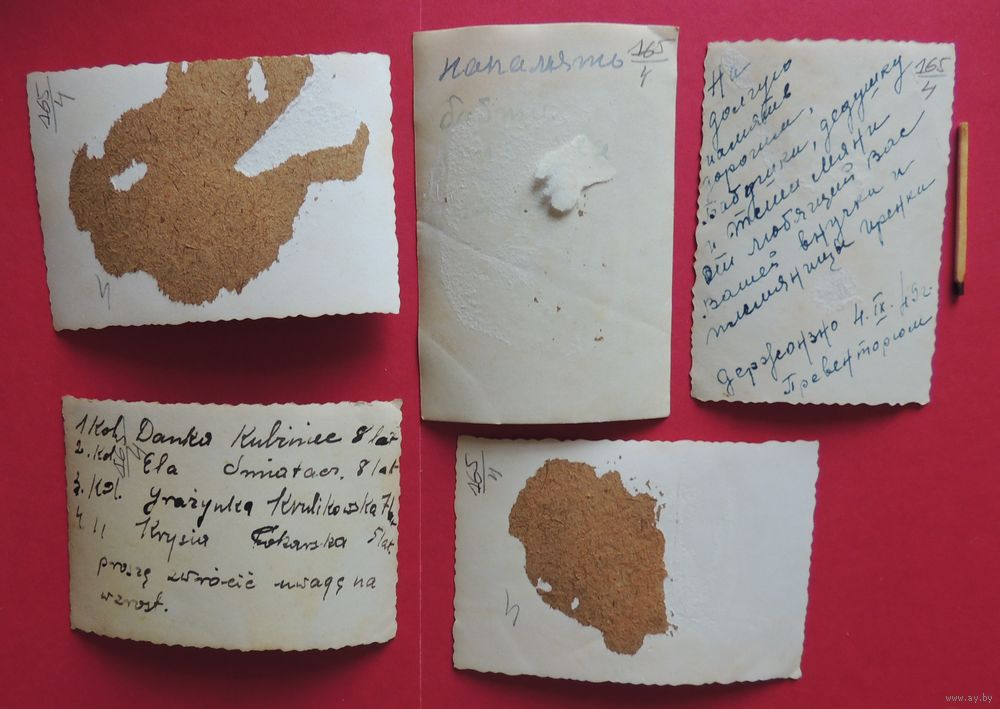 165
4
ч
напамять
165
4
На
долгую
память
Дорогим,
Бабушки, дедушку
и тети Мяни
от любящий Вас
Вашей внучки и
племянницы Иренки
Держонзно 4.IX.49г.
Превенторюм
165
4
1 Kol. Danka Kubiniec 8 lat
2. Kol. Ela 8 lat
3. Kol. Grażynka Krulikowska 7 lat
4 11 Krysia Tokarska 5 lat
proszę zwrócić uwagę na
wzrost.
165
4
165
4
ч
www.ay.by